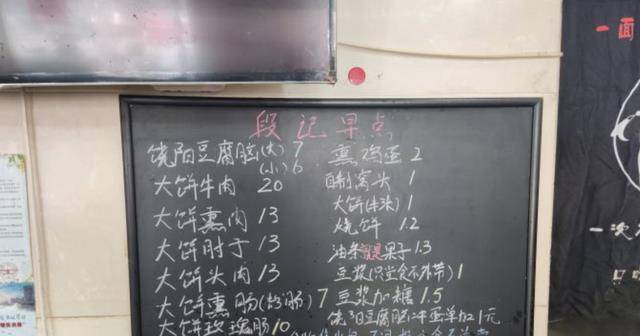 段记早点
饶阳豆腐脑(大) 7
(小) 6
大饼牛肉 20
大饼熏肉 13
大饼肘子 13
大饼头肉 13
大饼熏肠(粉肠) 7
大饼玫瑰肠 10
熏鸡蛋 2
自制窝头 1
大饼(半张) 1
烧饼 1.2
油条果子 1.3
豆浆(只堂食不外带) 1
豆浆加糖 1.5
一面
一次